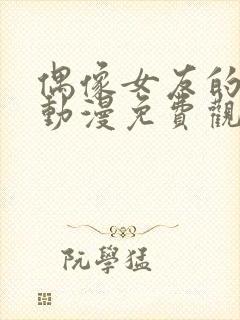 偶像女友的
動漫免費觀
阮學猛